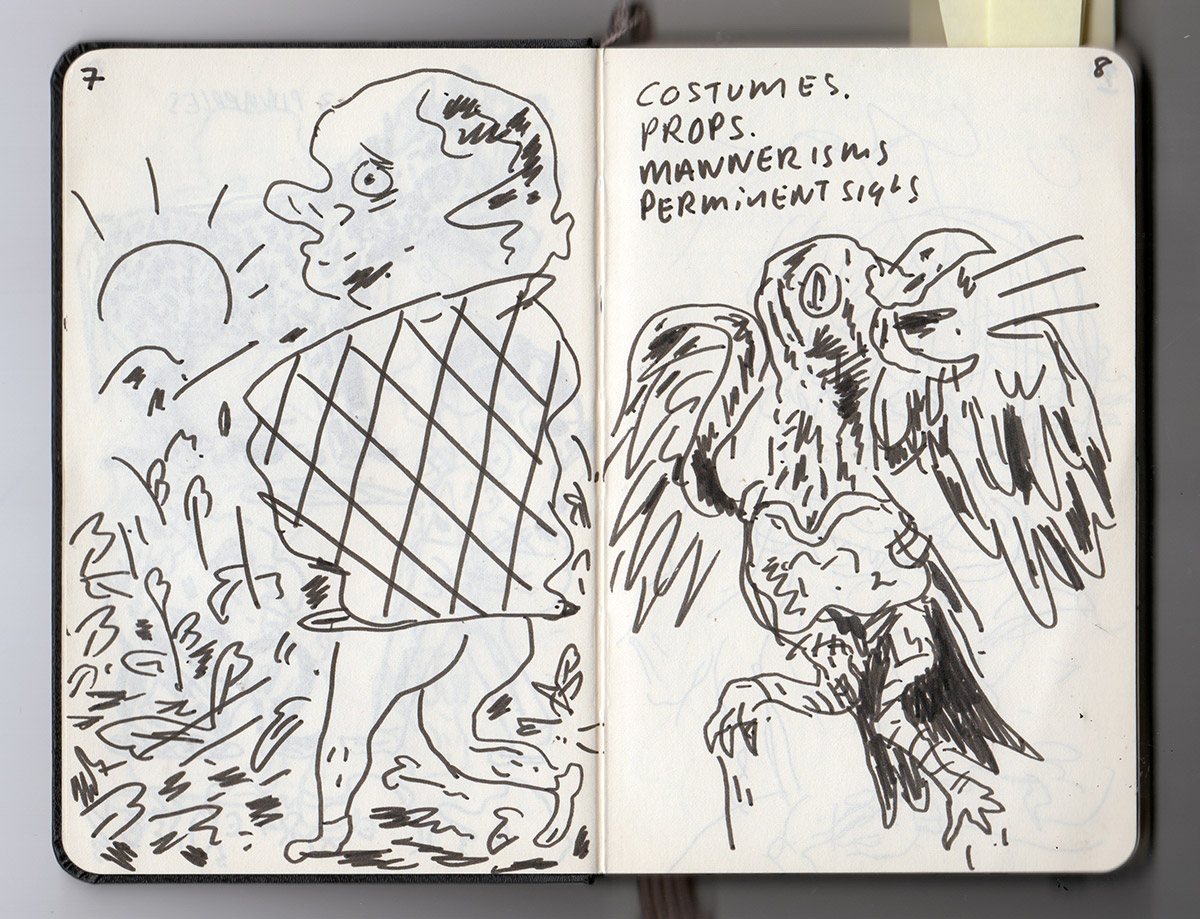 7
8
COSTUMES.
PROPS.
MANNERISMS
PERMINENT